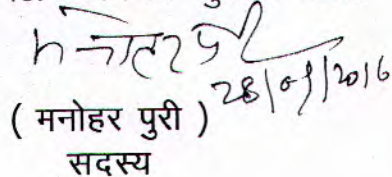 मनोहर पुरी
28/01/2016
( मनोहर पुरी )
सदस्य